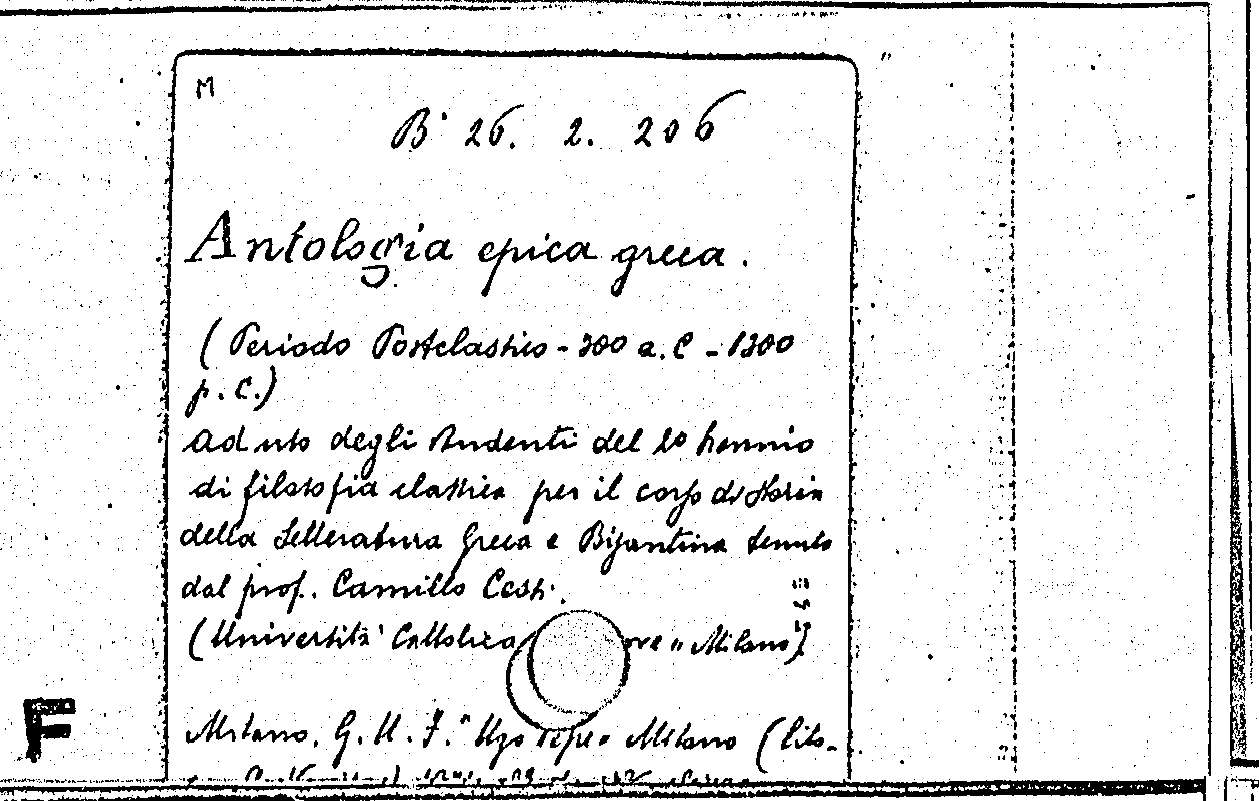 M
B° 26. 2. 206
Antologia epica greca.
(Periodo Postclassico - 300 a.C - 1300
p. C.)
ad uso degli studenti del 2° biennio
di filosofia classica per il corso di storia
della Letteratura Greca e Bizantina tenuto
dal prof. Camillo Cesti.
(Università Cattolica "Milano)
Milano, G. U. F. "Ugo Pepe" Milano (lito-
F